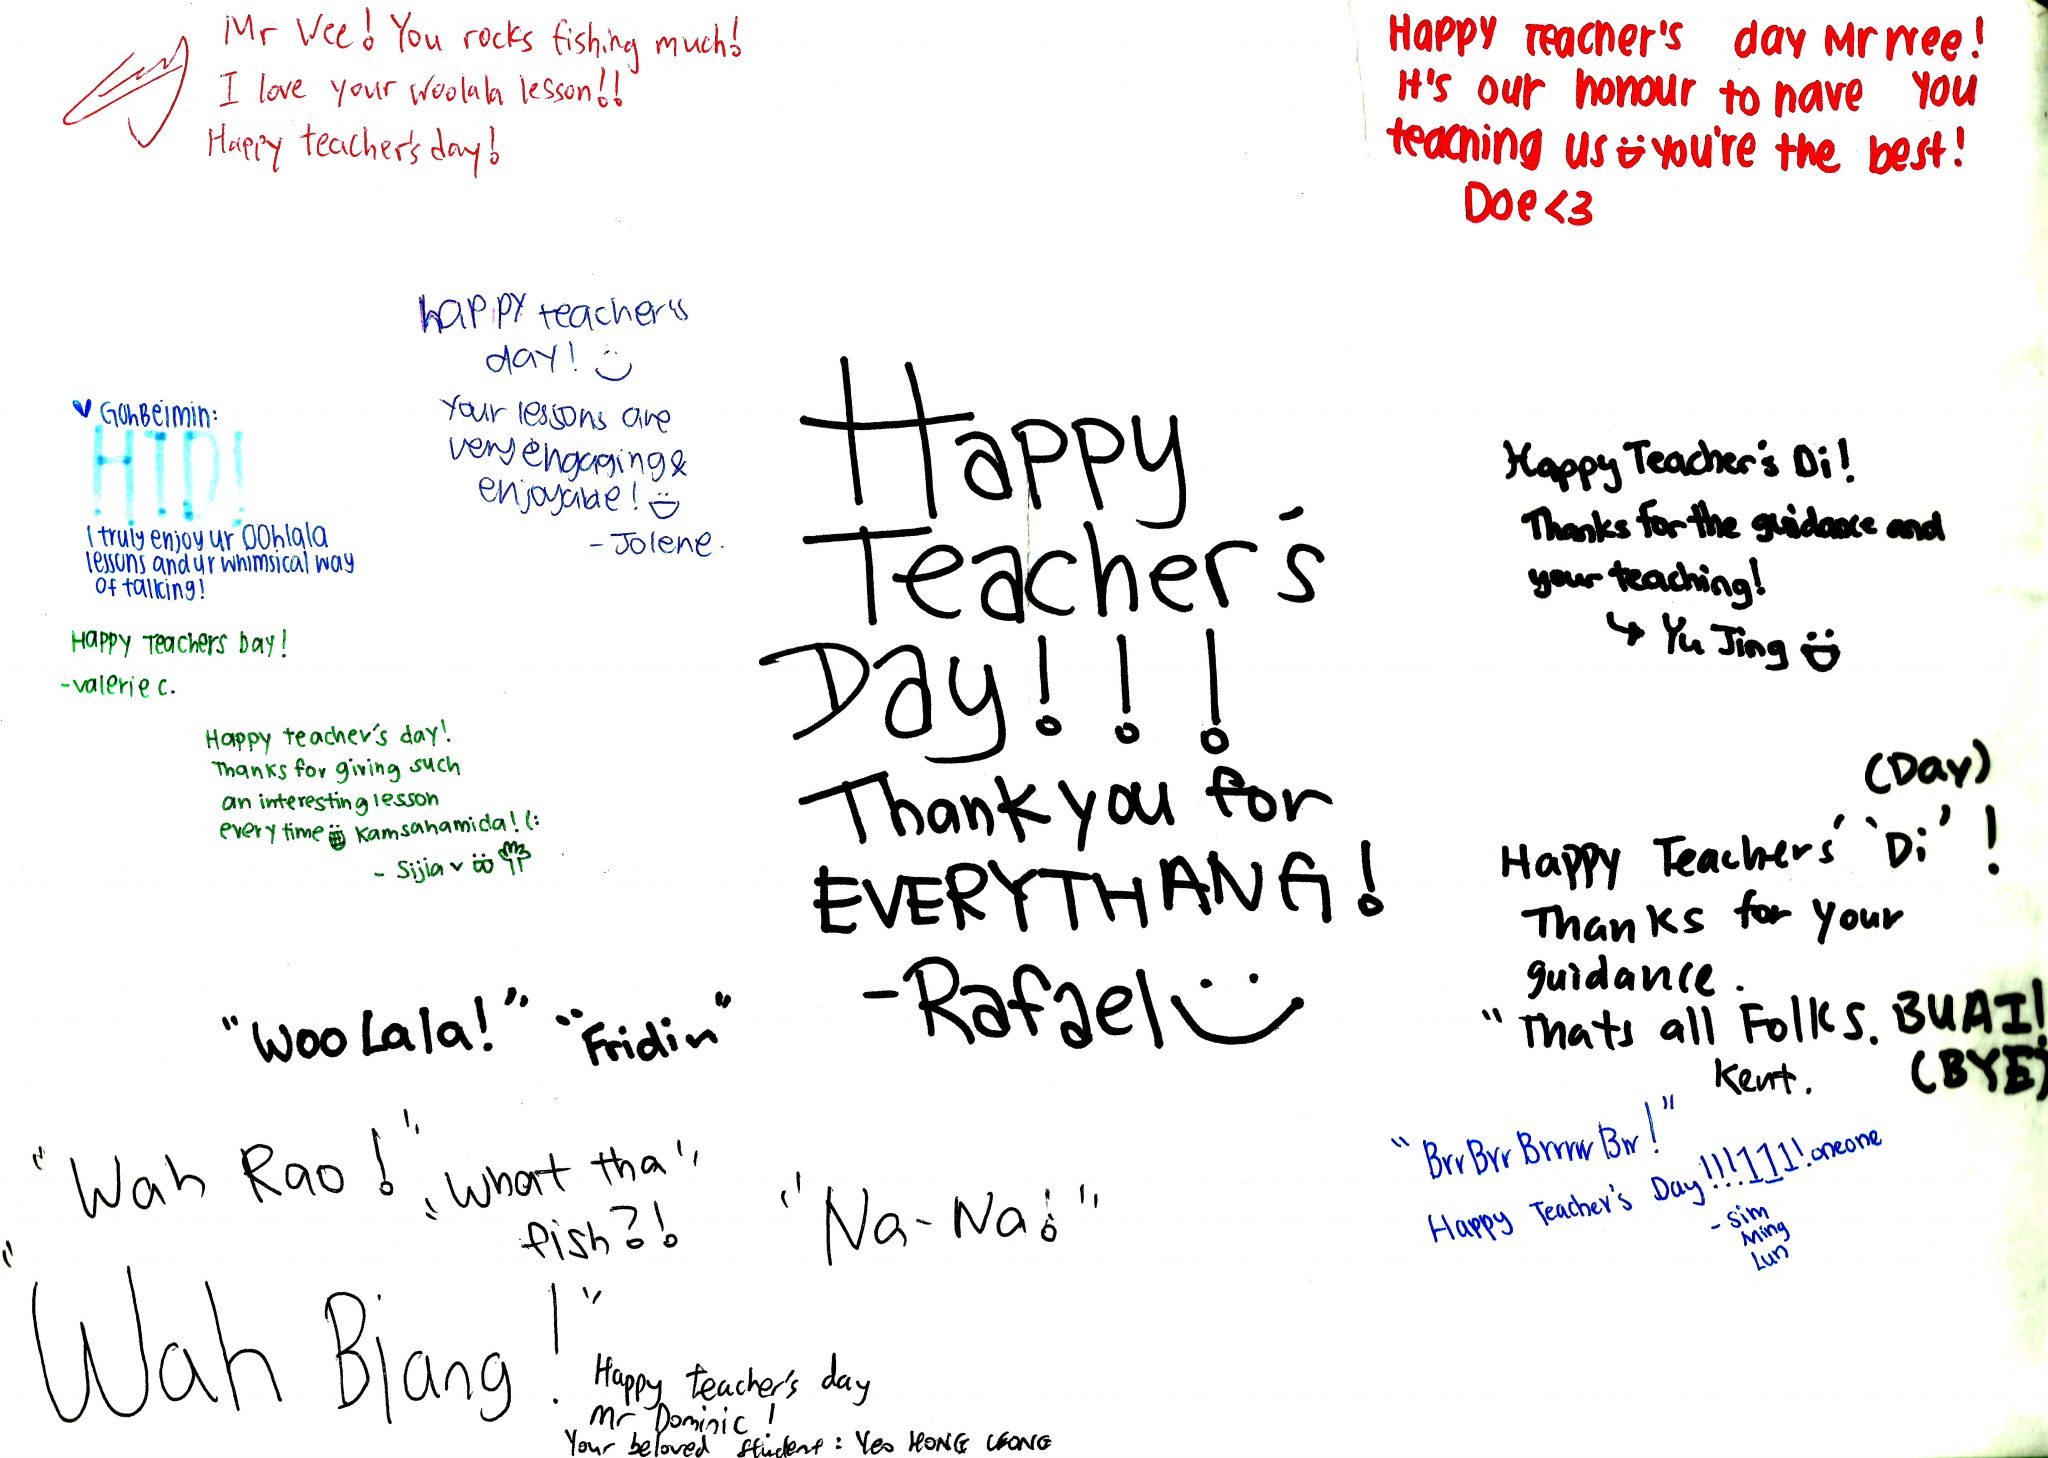 Mr Wee! You rocks fishing much!
I love your woolala lesson!!
Happy teacher's day!
Happy Teacher's day Mr Wee!
It's our honour to have you
teaching us you're the best!
Doe <3
happy teacher's
day!
Your lessons are
very engaging &
enjoyable!
- Jolene.
GohBeimin:
HTD!
I truly enjoy ur OOhlala
lessons and ur whimsical way
of talking!
Happy Teachers Day!
- Valerie C.
Happy teacher's day!
Thanks for giving such
an interesting lesson
every time Kamsahamida! (:
- Sijia
Happy
Teacher's
Day!!!
Thank you for
EVERYTHANG!
- Rafael
Happy Teacher's Di!
Thanks for the guidance and
your teaching!
Yu Jing
(Day)
Happy Teachers' 'Di'!
Thanks for your
guidance.
"Thats all Folks. BUAI!
(BYE)
Kent.
"Woo Lala!" "Fridin"
"Wah Rao!" "What tha"
fish?!
"Na-Na!"
"BrrBrrBrrrrrBrr!"
Happy Teacher's Day!!!111!oneone
- Sim
Ming
Lun
"Wah Bjang!"
Happy teacher's day
Mr Dominic!
Your beloved student: Yeo HONG LEONG